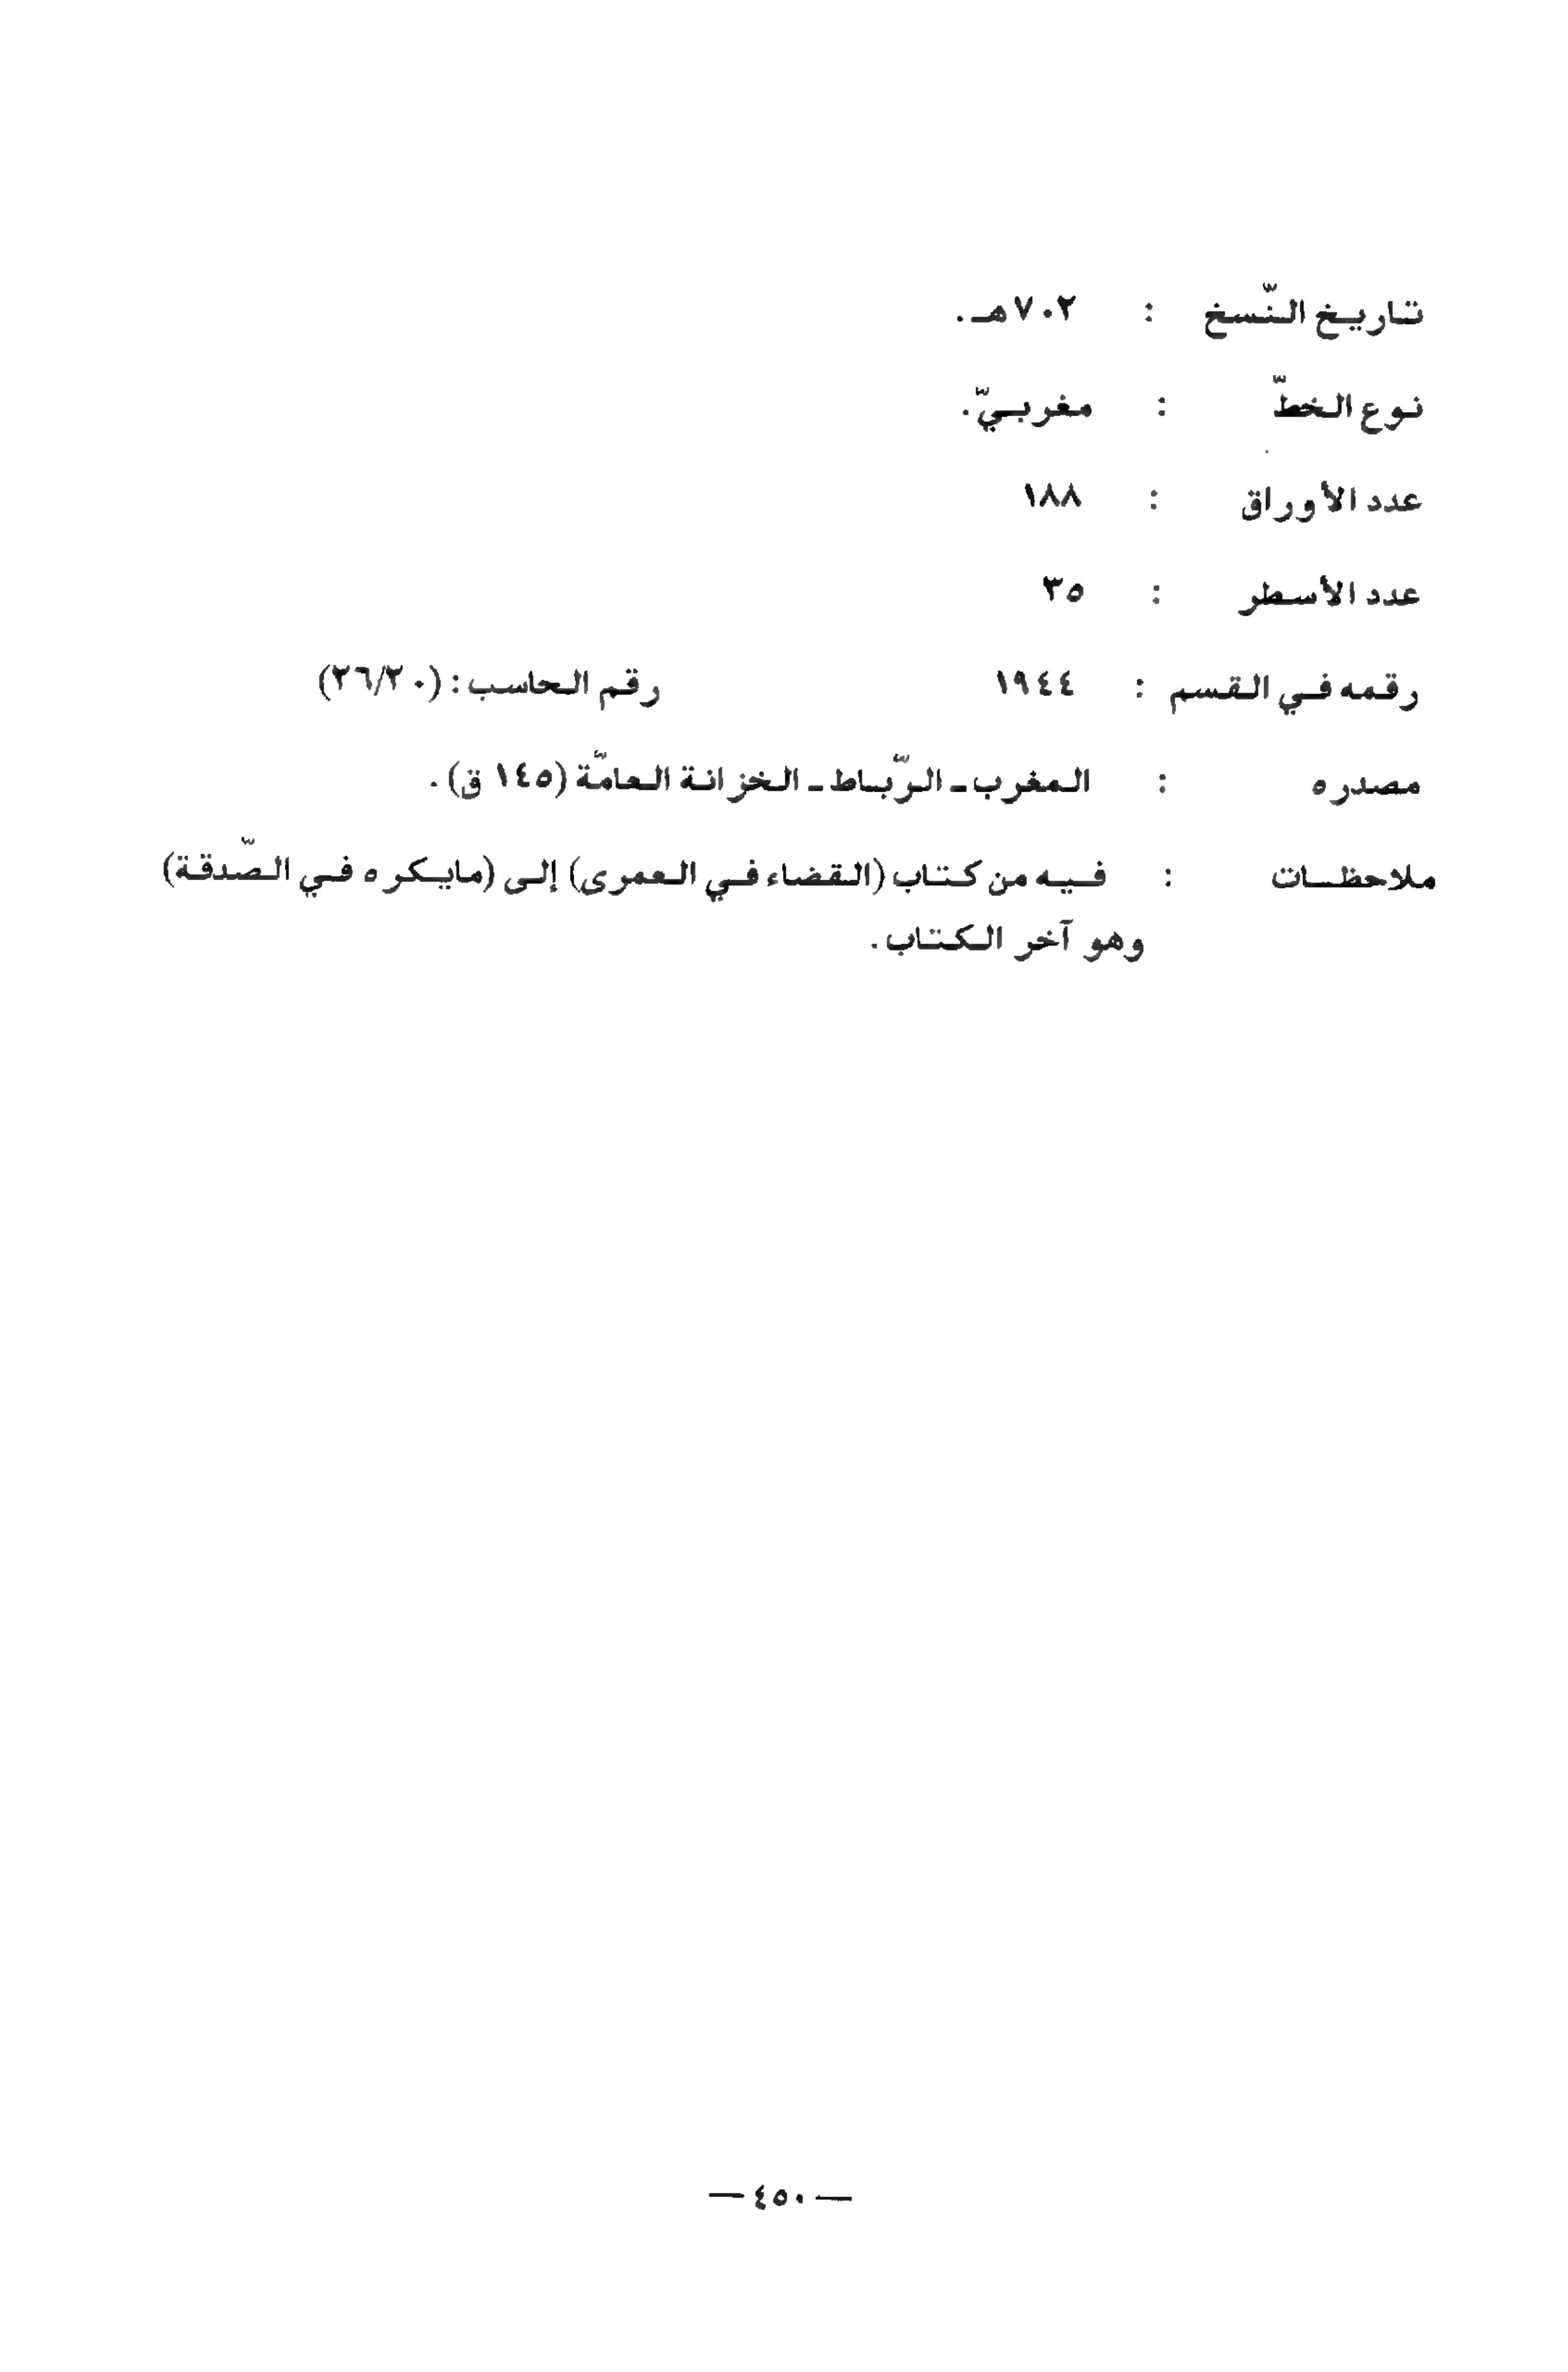 تاريخ النّسخ : ٧٠٢هـ.
نوع الخطّ : مغربيّ.
عدد الأوراق : ١٨٨
عدد الأسطر : ٣٥
رقمه في القسم : ١٩٤٤ رقم الحاسب : (٢٦/٢٠)
مصدره : المغرب ـ الرّباط ـ الخزانة العامّة (١٤٥ ق).
ملاحظات : فيه من كتاب (القضاء في العمرى) إلى (مايكره في الصّدقة)
وهو آخر الكتاب.
— ٤٥٠ —